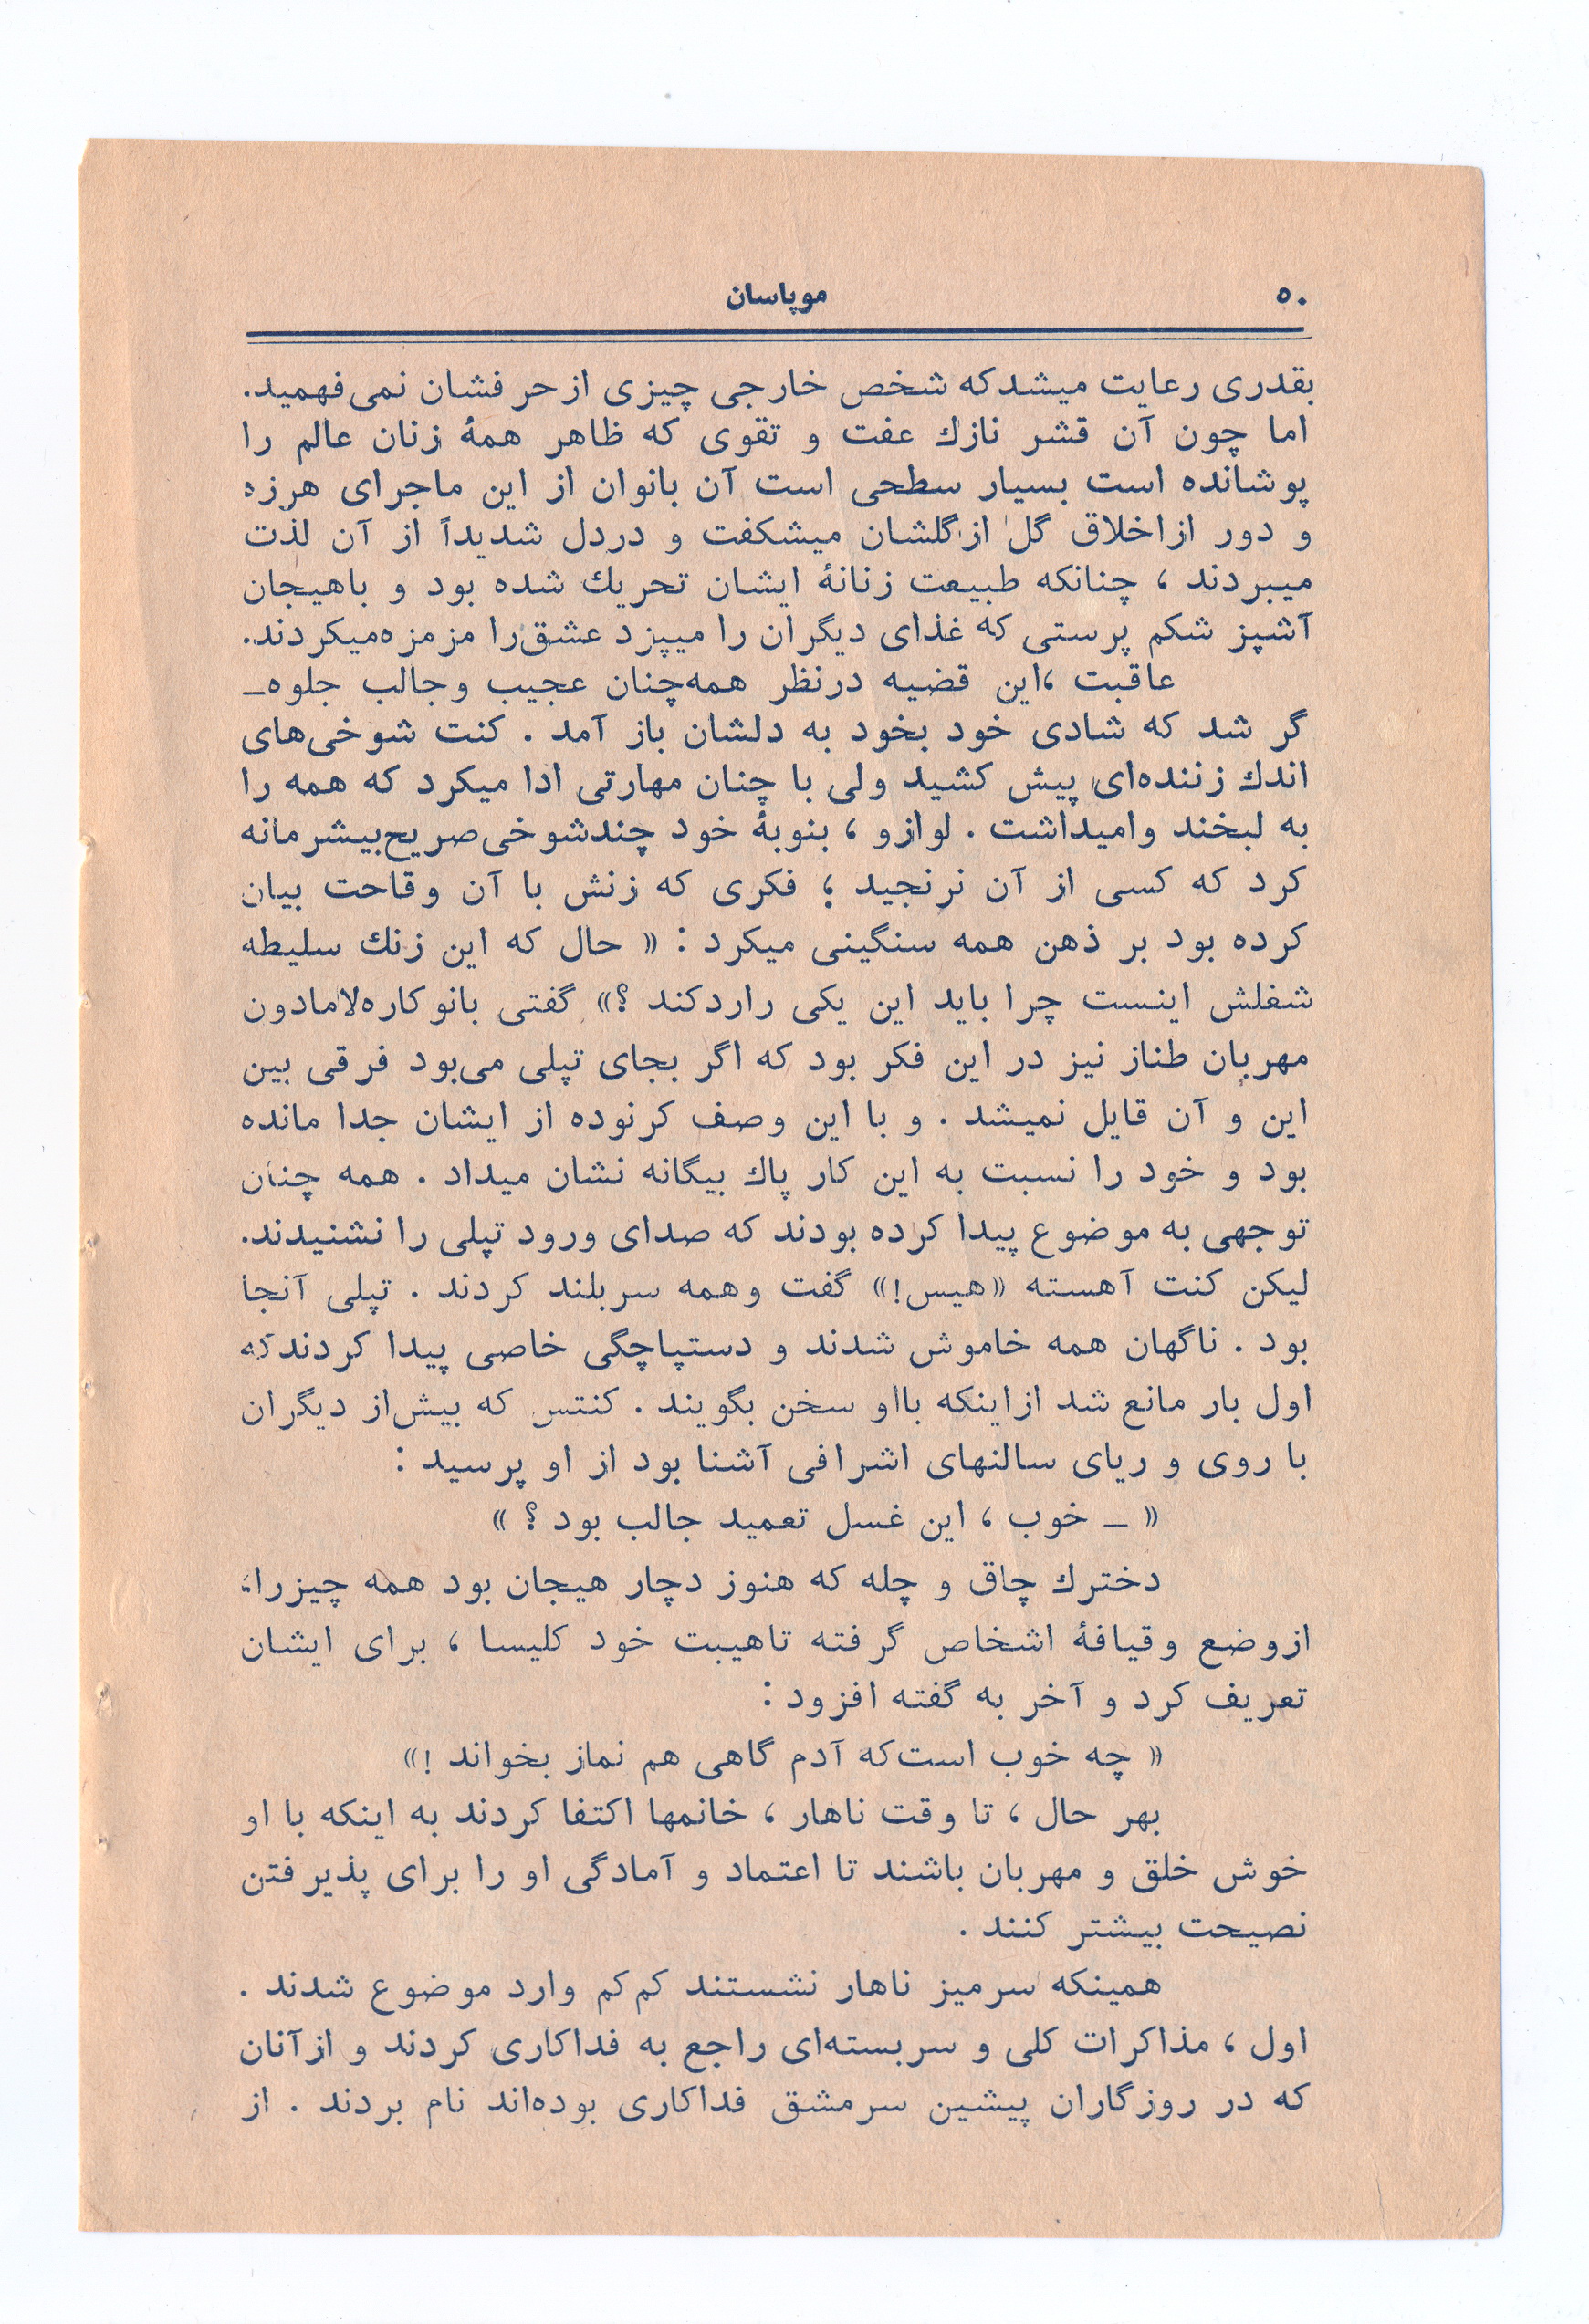 ۵۰
موپاسان
بقدری رعایت میشدکه شخص خارجی چیزی ازحرفشان نمی‌فهمید.
اما چون آن قشر نازك عفت و تقوی که ظاهر همهٔ زنان عالم را
پوشانده است بسیار سطحی است آن بانوان از این ماجرای هرزه
و دور ازاخلاق گل ازگلشان میشکفت و دردل شدیداً از آن لذت
میبردند ، چنانکه طبیعت زنانهٔ ایشان تحریك شده بود و باهیجان
آشپز شکم پرستی که غذای دیگران را میپزد عشق‌را مزمزه‌میکردند.
عاقبت ،این قضیه درنظر همه‌چنان عجیب وجالب جلوه_
گر شد که شادی خود بخود به دلشان باز آمد . کنت شوخی‌های
اندك زننده‌ای پیش کشید ولی با چنان مهارتی ادا میکرد که همه را
به لبخند وامیداشت . لوازو ، بنوبهٔ خود چندشوخی‌صریح‌بیشرمانه
کرد که کسی از آن نرنجید ؛ فکری که زنش با آن وقاحت بیان
کرده بود بر ذهن همه سنگینی میکرد : « حال که این زنك سلیطه
شغلش اینست چرا باید این یکی راردکند ؟» گفتی بانوکاره‌لامادون
مهربان طناز نیز در این فکر بود که اگر بجای تپلی می‌بود فرقی بین
این و آن قایل نمیشد . و با این وصف کرنوده از ایشان جدا مانده
بود و خود را نسبت به این کار پاك بیگانه نشان میداد . همه چنان
توجهی به موضوع پیدا کرده بودند که صدای ورود تپلی را نشنیدند.
لیکن کنت آهسته «هیس!» گفت وهمه سربلند کردند . تپلی آنجا
بود . ناگهان همه خاموش شدند و دستپاچگی خاصی پیدا کردندکه
اول بار مانع شد ازاینکه بااو سخن بگویند . کنتس که بیش‌از دیگران
با روی و ریای سالنهای اشرافی آشنا بود از او پرسید :
« _ خوب ، این غسل تعمید جالب بود ؟ »
دخترك چاق و چله که هنوز دچار هیجان بود همه چیزرا،
ازوضع وقیافهٔ اشخاص گرفته تاهیبت خود کلیسا ، برای ایشان
تعریف کرد و آخر به گفته افزود :
« چه خوب است‌که آدم گاهی هم نماز بخواند !»
بهر حال ، تا وقت ناهار ، خانمها اکتفا کردند به اینکه با او
خوش خلق و مهربان باشند تا اعتماد و آمادگی او را برای پذیرفتن
نصیحت بیشتر کنند .
همینکه سرمیز ناهار نشستند کم‌کم وارد موضوع شدند .
اول ، مذاکرات کلی و سربسته‌ای راجع به فداکاری کردند و ازآنان
که در روزگاران پیشین سرمشق فداکاری بوده‌اند نام بردند . از